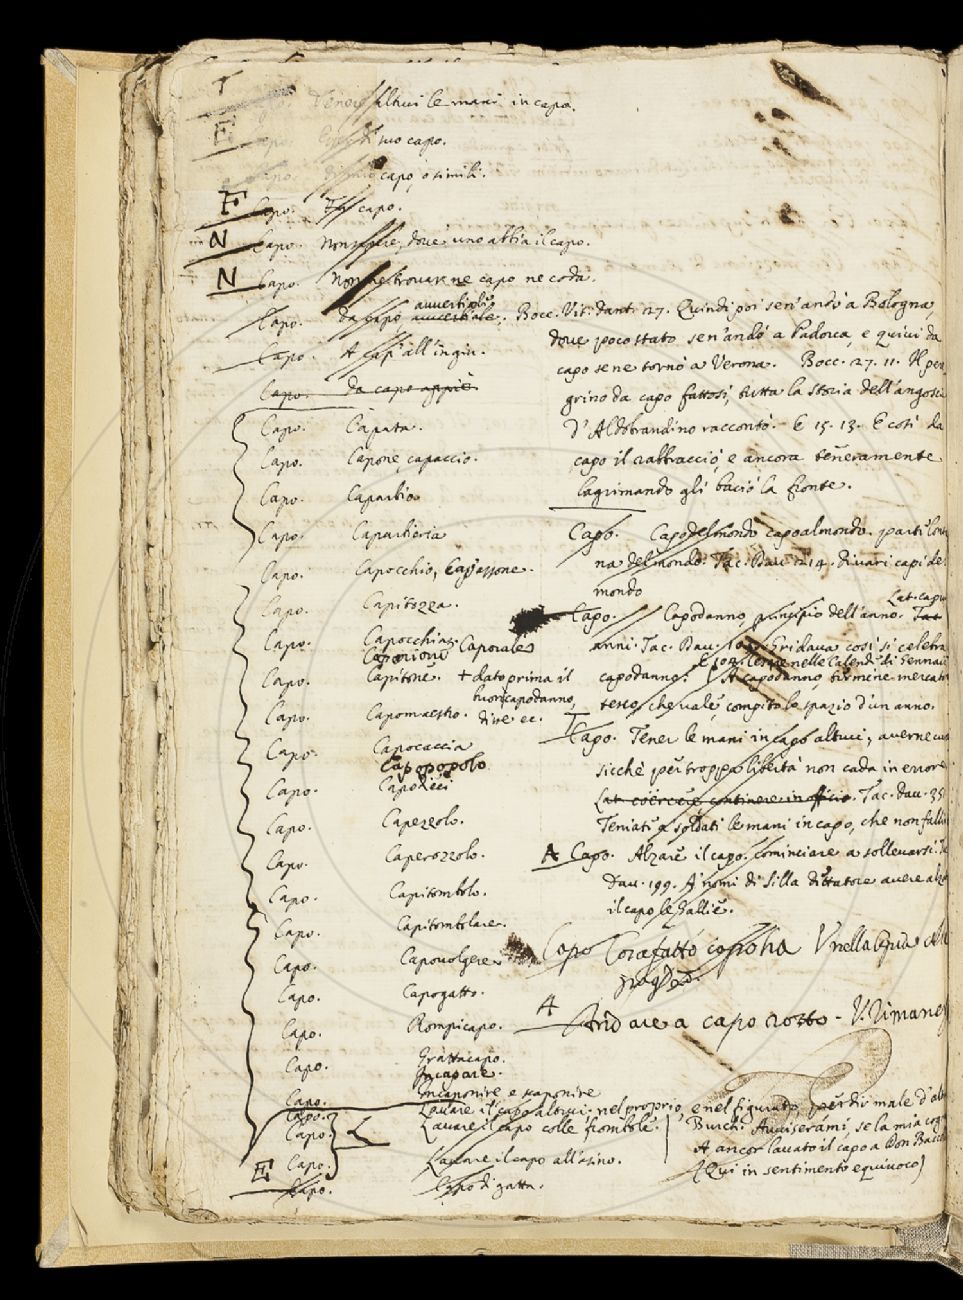 T
altrui le mani in capo.
E
suo capo.
capo, o simili.
F Capo. capo.
N Capo. Non sapere, dove uno abbia il capo.
N Capo. Non ne trovare ne capo ne coda.
Capo. da capo, avverbiale. avverbiale. Bocc. Vit. Dant. 27. Quindi poi sen' andò a Bologna,
dove poco stato sen' andò a Padova, e quivi da
capo se ne tornò a Verona. Bocc. 27. 11. Il pere
grino da capo fattosi, tutta la storia dell'angoscia
d'Aldobrandino raccontò. E 15. 13. E così da
capo il rabbracciò, e ancora teneramente
lagrimando gli baciò la fronte.
Capo. A cap' all'ingiu.
Capo. da capo appiè
Capo. Capata.
Capo. Capone, capaccio.
Capo. Caparbio
Capo. Caparbieria
Capo. Capocchio, Capassone.
Capo. Capitozza.
Capo. Capocchina. Caporale
Caporione
Capo. Capitone. + dato prima il
buon capodanno,
Capo. Capomaestro. dire ec.
Capo. Capocaccia
Capopopolo
Capo. Capodieci
Capo. Capezzolo.
Capo. Caperozzolo.
Capo. Capitombolo.
Capo. Capitombolare.
Capo. Capovolgere
Capo. Capogatto.
Capo. Rompicapo.
Capo. Grattacapo.
Incapare.
Capo. Incaponire e scaponire
Capo. del mondo capo al mondo.
na del mondo. Tac. Dav. 214. Di vari capi del
mondo
Capo. Capodanno, principio dell'anno. Lat. caput
anni. Tac. Dav. Gridava così si celebra
nelle Calendi di Gennaio
capodanno. A capodanno, termine mercan
tesco, che vale, compito lo spazio d'un anno.
T Capo. Tener le mani in capo altrui, averne cura
sicchè per troppa libertà non cada in errore
Lat. coercere continere in officio. Tac. Dav. 35
Teniati i soldati le mani in capo, che non falli
A Capo. Alzare il capo. Cominciare a sollevarsi.
Dav. 199. A' nomi di Silla dittatore avere alza
il capo le Gallie.
Capo
A
Andare a capo rotto - V. Rimanere
Capo. Lavare il capo altrui. nel proprio, e nel figurato, per dir male d'altr
Capo. Lavare il capo colle frombole. Burch. Avviserami, se la mia
A ancor lavato il capo a Don
(Qui in sentimento equivoco)
Capo. Lavare il capo all'asino.
E Capo. Capo di gatta.